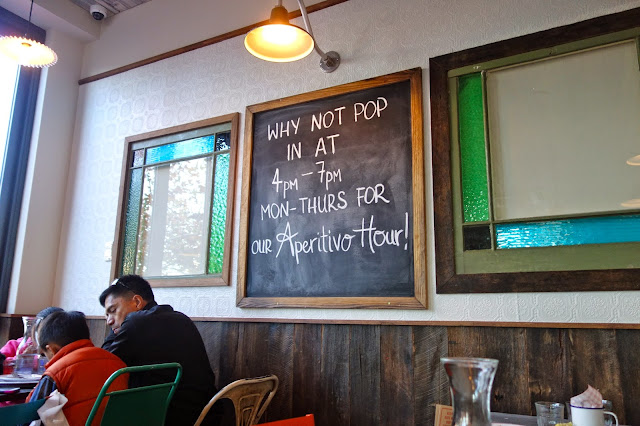 WHY NOT POP
IN AT
4PM – 7PM
MON-THURS FOR
OUR Aperitivo Hour!